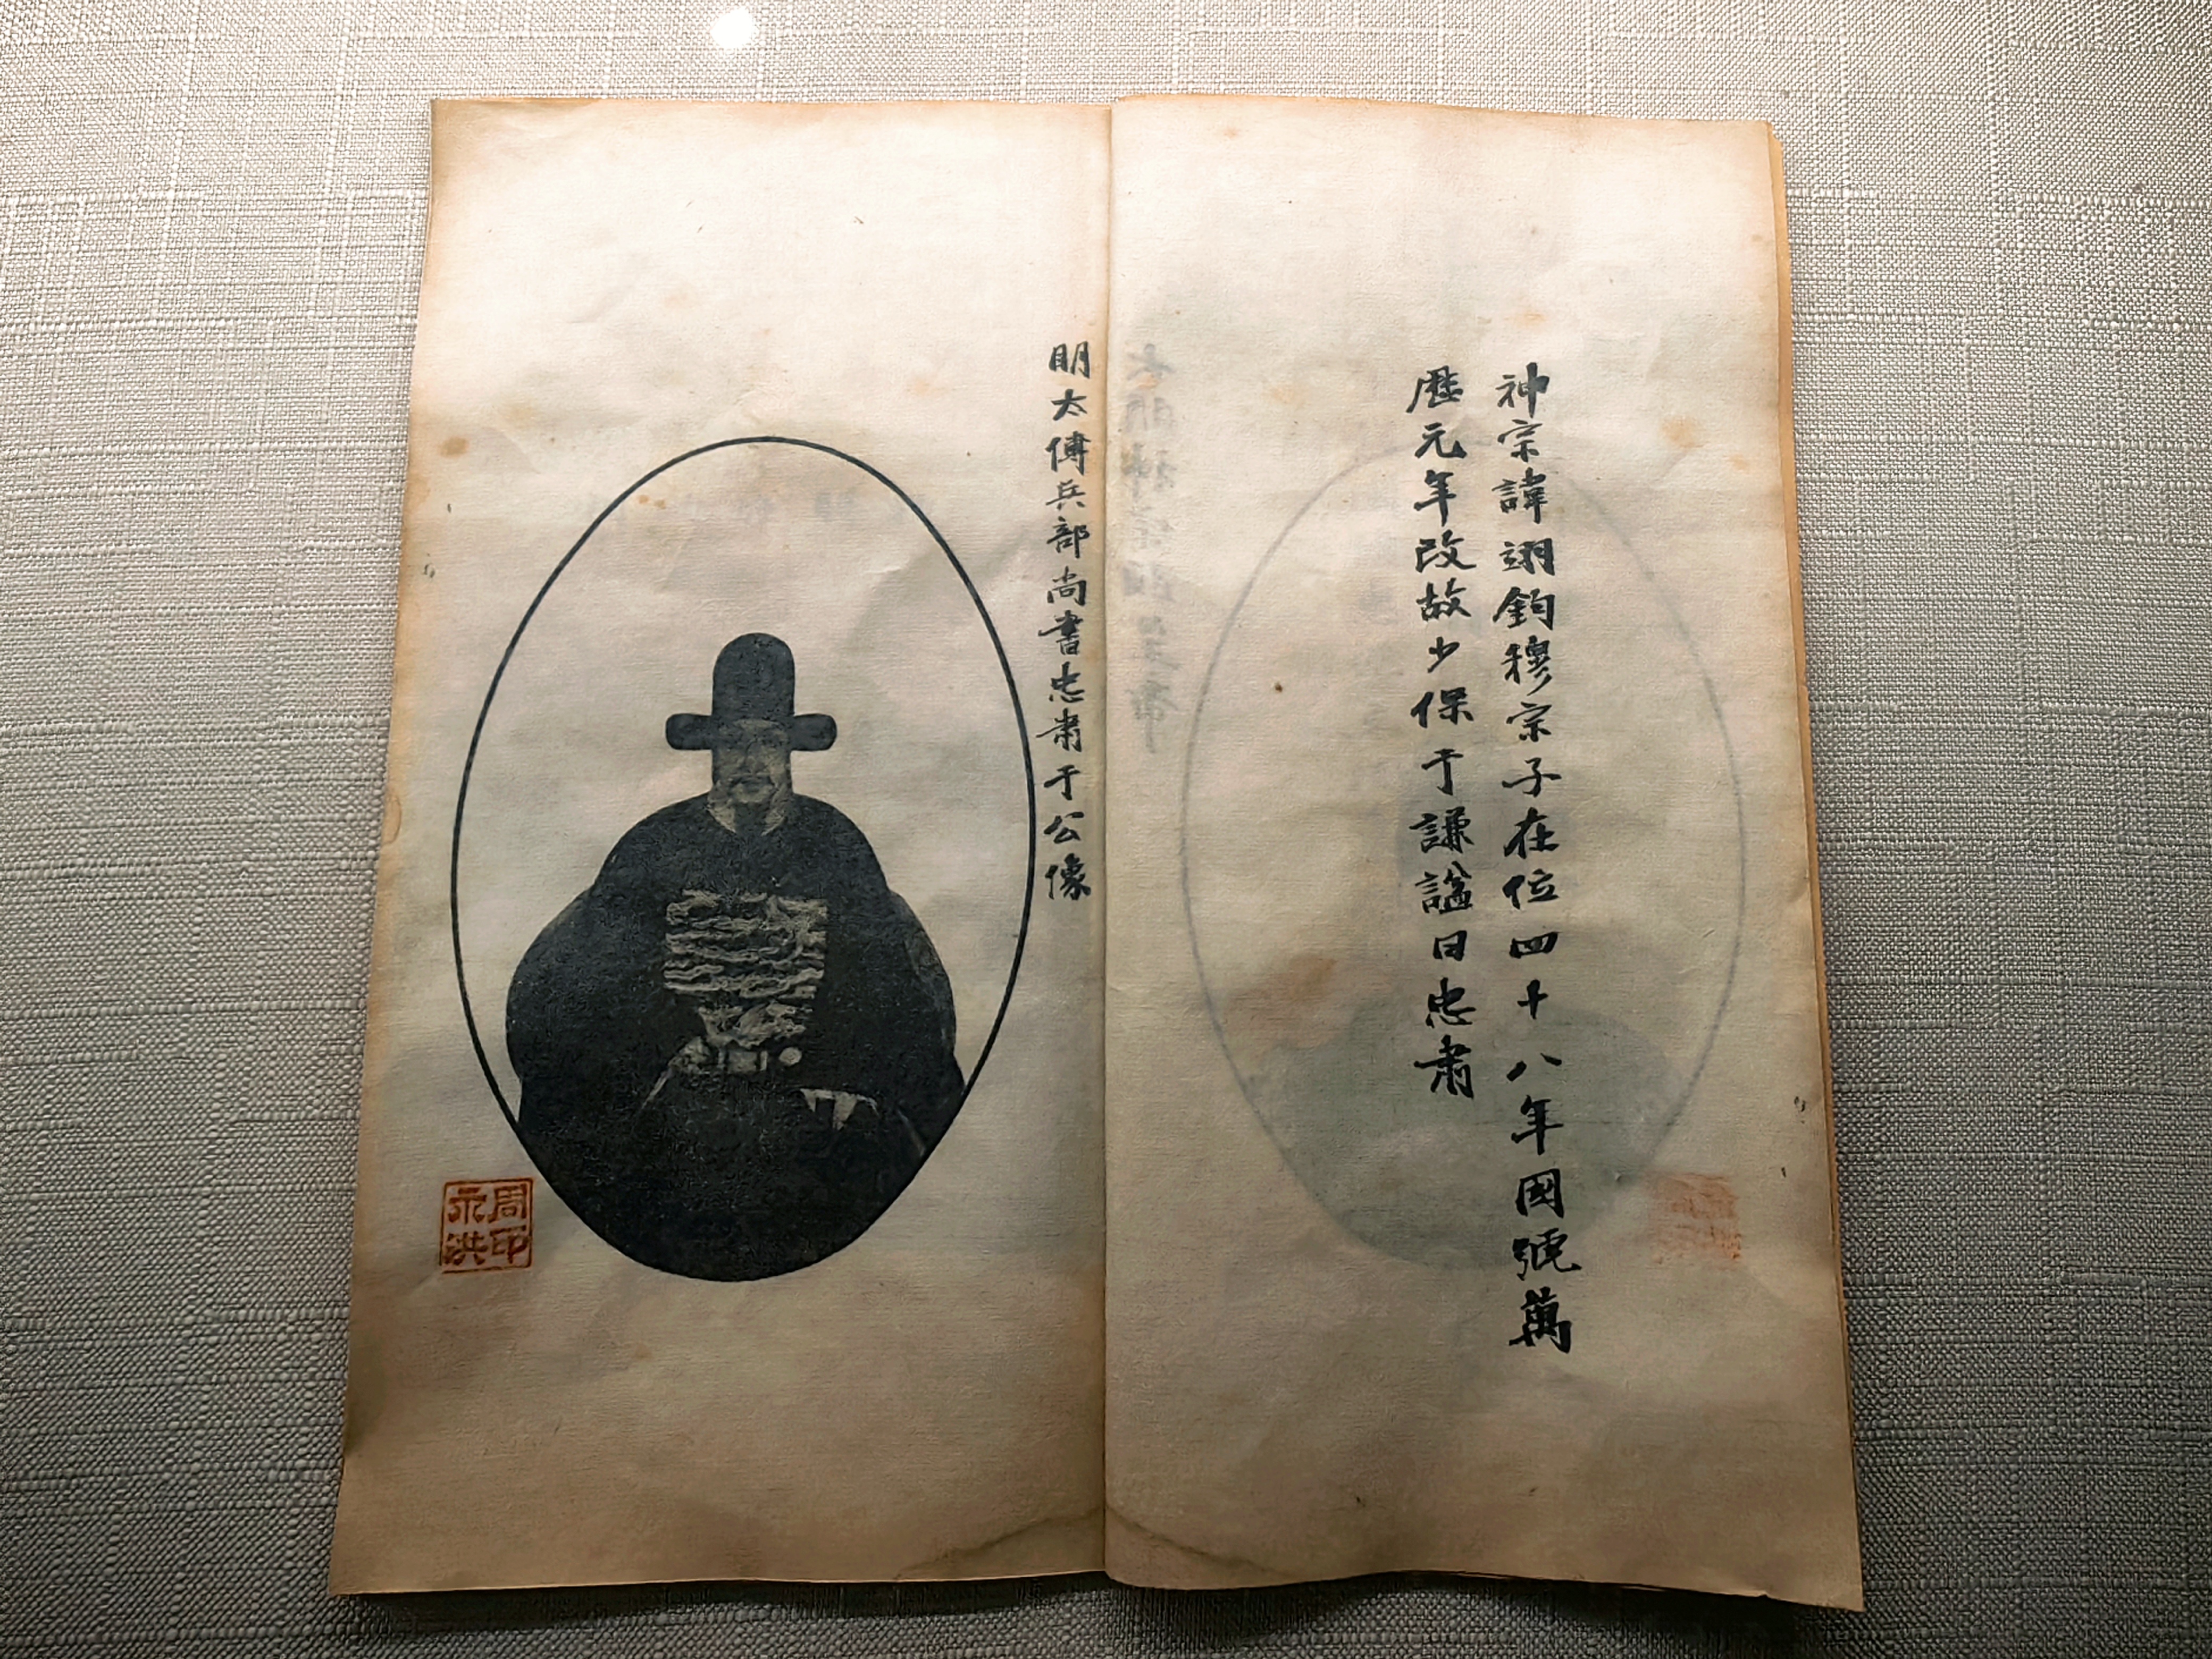 神宗諱翊鈞穆宗子在位四十八年國號萬
歷元年改故少保于謙謚曰忠肅
明太傅兵部尚書忠肅于公像
周印
永洪